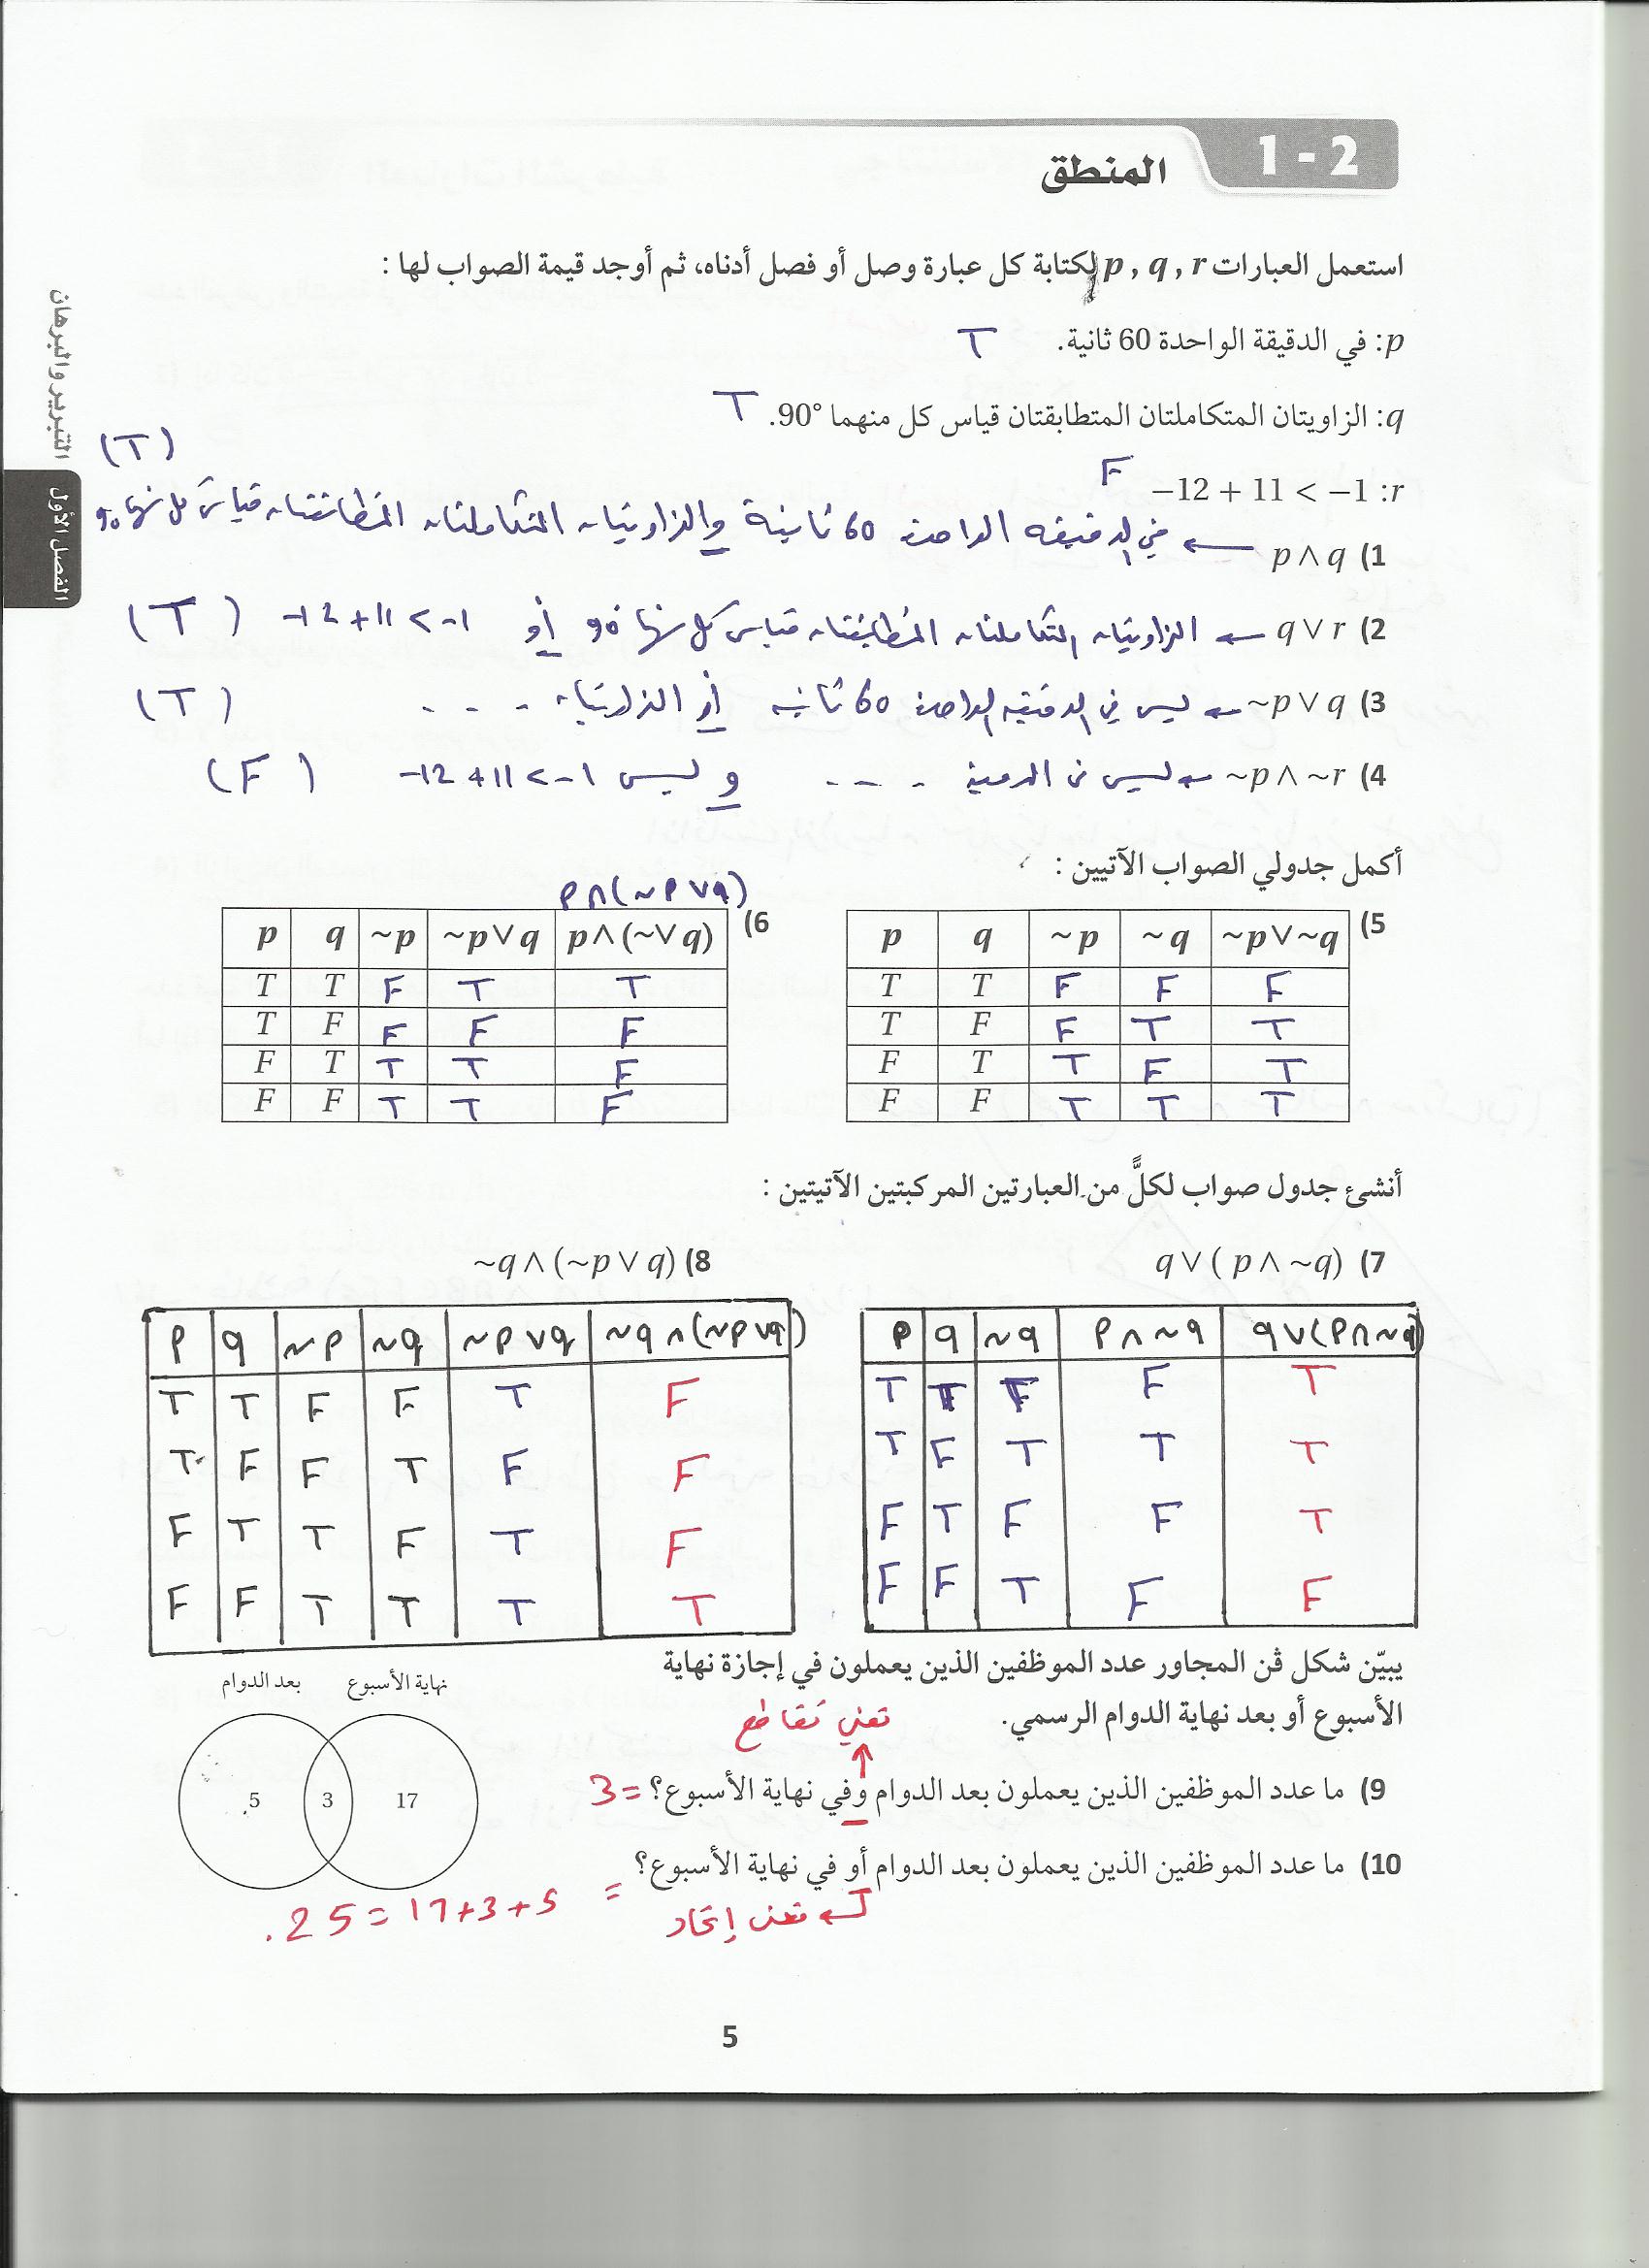 1 - 2
المنطق
استعمل العبارات p , q , r لكتابة كل عبارة وصل أو فصل أدناه، ثم أوجد قيمة الصواب لها :
p: في الدقيقة الواحدة 60 ثانية. T
q: الزاويتان المتكاملتان المتطابقتان قياس كل منهما 90°. T
(T)
r: −12 + 11 < −1 F
1) p ∧ q ← في الدقيقه الواحدة 60 ثانية والزاويتان المتكاملتان المتطابقتان قياس كل منهما 90
2) q ∨ r ← الزاويتان المتكاملتان المتطابقتان قياس كل منهما 90 أو -12+11 < -1 (T)
3) ~p ∨ q ← ليس في الدقيقه الواحدة 60 ثانيه أو الزاويتان . . . (T)
4) ~p ∧ ~r ← ليس في . . . و ليس -12+11 < -1 (F)
أكمل جدولي الصواب الآتيين :
5)
p q ~p ~q ~p ∨ ~q
T T F F F
T F F T T
F T T F T
F F T T T
6) p ∧ (~p ∨ q)
p q ~p ~p ∨ q p ∧ (~∨ q)
T T F T T
T F F F F
F T T T F
F F T T F
أنشئ جدول صواب لكلًّ من العبارتين المركبتين الآتيتين :
7) q ∨ ( p ∧ ~q)
p q ~q p ∧ ~q q ∨ (p ∧ ~q)
T T F F T
T F T T T
F T F F T
F F T F F
8) ~q ∧ (~p ∨ q)
p q ~p ~q ~p ∨ q ~q ∧ (~p ∨ q)
T T F F T F
T F F T F F
F T T F T F
F F T T T T
يبيّن شكل ڤن المجاور عدد الموظفين الذين يعملون في إجازة نهاية
الأسبوع أو بعد نهاية الدوام الرسمي.
تعني تقاطع
↑
9) ما عدد الموظفين الذين يعملون بعد الدوام وفي نهاية الأسبوع؟ = 3
10) ما عدد الموظفين الذين يعملون بعد الدوام أو في نهاية الأسبوع؟
← تعني إتحاد
= 5+3+17 = 25.
نهاية الأسبوع بعد الدوام
5 3 17
5
التبرير والبرهان
الفصل الأول